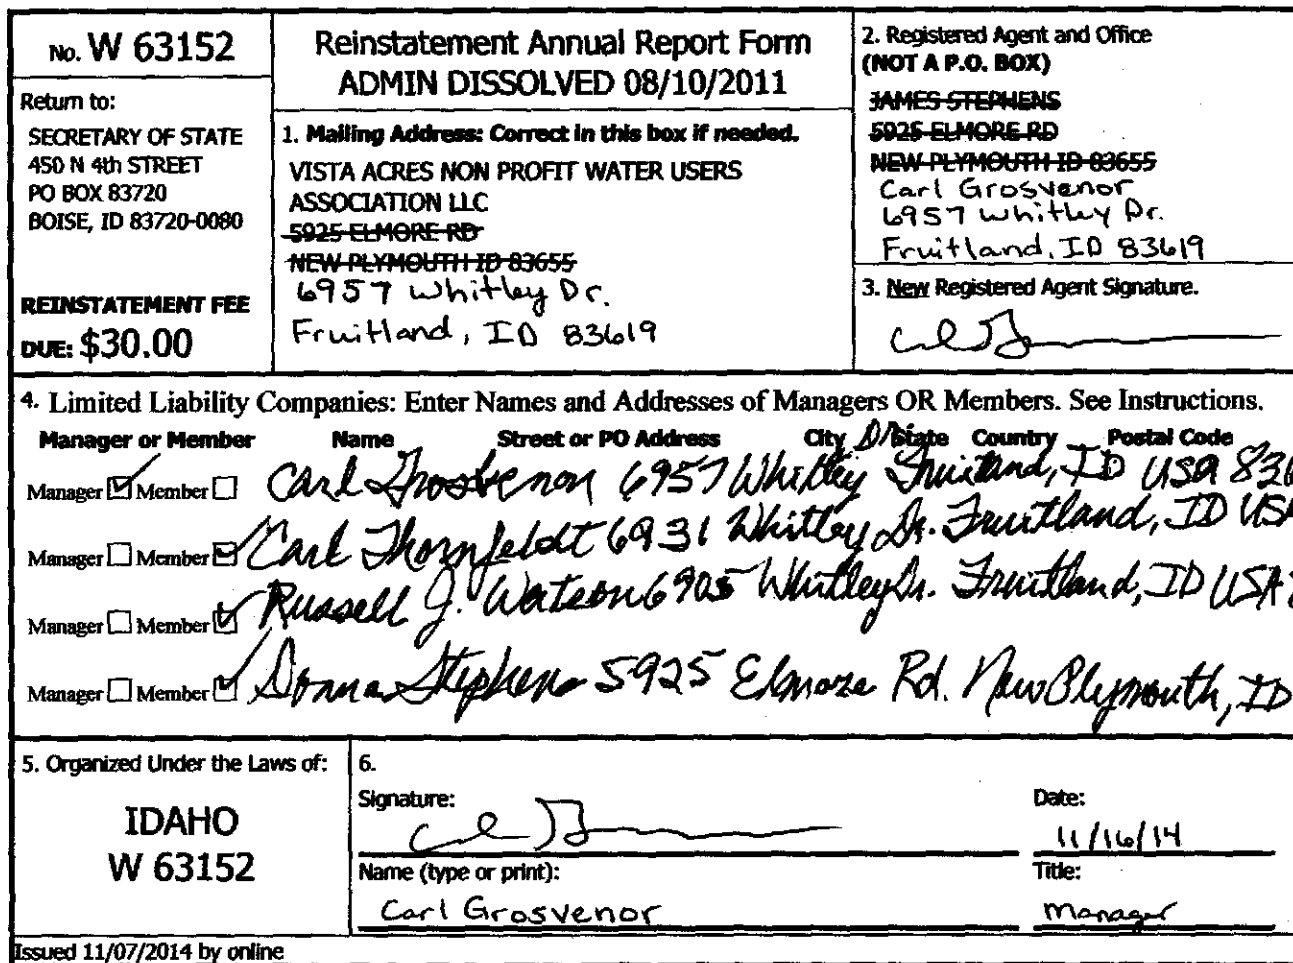 No. W 63152
Reinstatement Annual Report Form
ADMIN DISSOLVED 08/10/2011
Return to:
SECRETARY OF STATE
450 N 4th STREET
PO BOX 83720
BOISE, ID 83720-0080
REINSTATEMENT FEE
DUE: $30.00
1. Mailing Address: Correct in this box if needed.
VISTA ACRES NON PROFIT WATER USERS
ASSOCIATION LLC
5925 ELMORE RD
NEW PLYMOUTH ID 83655
6957 Whitley Dr.
Fruitland, ID 83619
2. Registered Agent and Office
(NOT A P.O. BOX)
JAMES STEPHENS
5925 ELMORE RD
NEW PLYMOUTH ID 83655
Carl Grosvenor
6957 Whitley Dr.
Fruitland, ID 83619
3. New Registered Agent Signature.
4. Limited Liability Companies: Enter Names and Addresses of Managers OR Members. See Instructions.
Manager or Member Name Street or PO Address City State Country Postal Code
Manager Member Carl Grosvenor 6957 Whitley Dr. Fruitland, ID USA 836
Manager Member Carl Thornfeldt 6931 Whitley Dr. Fruitland, ID USA
Manager Member Russell J. Watson 6905 Whitley Dr. Fruitland, ID USA
Manager Member Donna Stephens 5925 Elmore Rd. New Plymouth, ID
5. Organized Under the Laws of:
IDAHO
W 63152
6.
Signature:
Date:
11/16/14
Name (type or print):
Carl Grosvenor
Title:
Manager
Issued 11/07/2014 by online